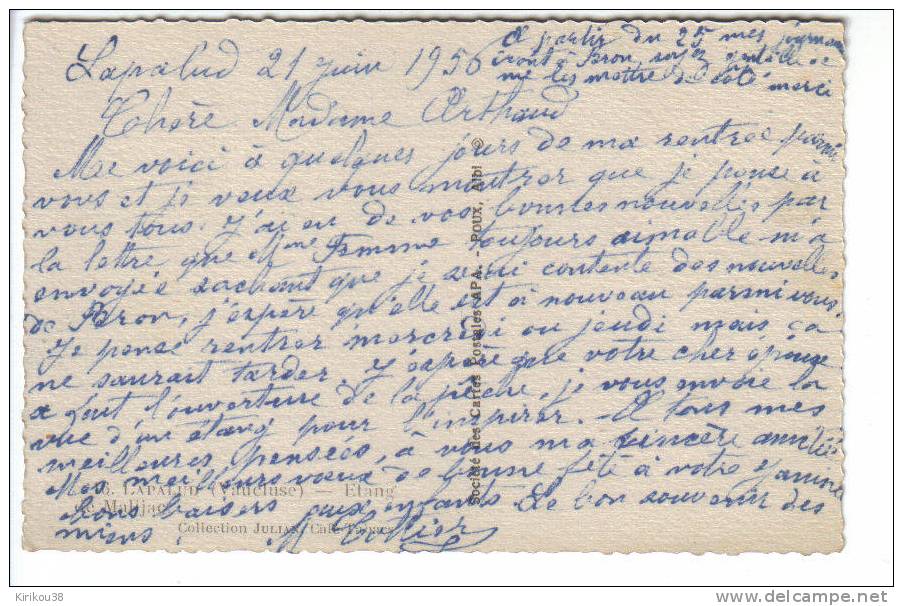 A partir du 25 mes journaux
iront à Bron, soyez gentille de
me les mettre de côté merci
Lapalud 21 juin 1956
Chère Madame Arthaud
Me voici à quelques jours de ma rentrée parmi
vous et je veux vous montrer que je pense à
vous tous. J'ai eu de vos bonnes nouvelles par
la lettre que Mme Femme toujours aimable m'a
envoyée sachant que je serai contente des nouvelles
de Bron, j'espère qu'elle est à nouveau parmi vous.
Je pense rentrer mercredi ou jeudi mais ça
ne saurait tarder. J'espère que votre cher époux
a fait l'ouverture de la pêche, je vous envoie la
vue d'un étang pour l'inspirer. - A tous mes
meilleures pensées, à vous ma sincère amitié
Mes meilleurs voeux de bonne fête à votre Janine
bons baisers aux enfants Le bon souvenir des
miens.
LAPALUD (Vaucluse) — Etang
Collection JULIAN, Café-Tabacs
Société des Cartes Postales APA. - POUX, Albi ©
Kirikou38
www.delcampe.net